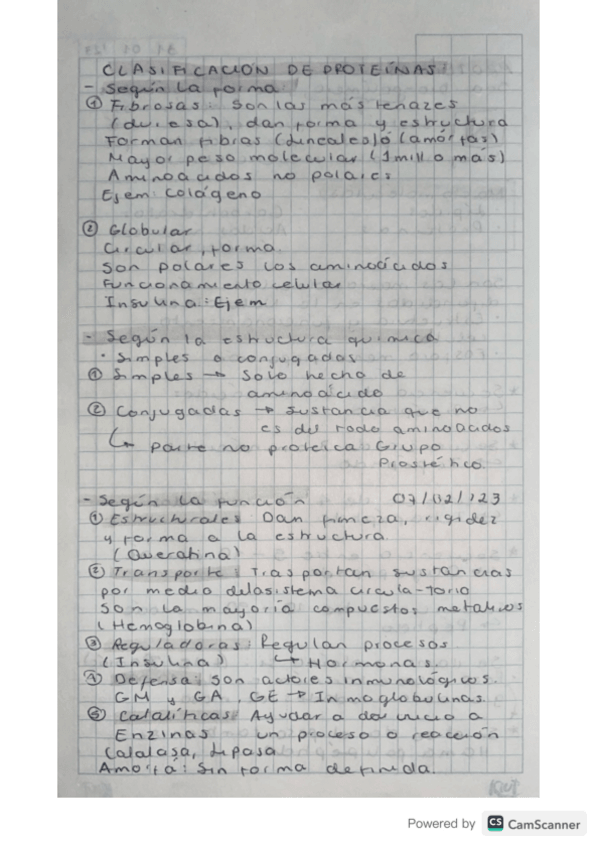 CLASIFICACION DE PROTEÍNAS:
- Según la forma
① Fibrosas: Son las más tenazes
(dureza), dan forma y estructura
Forman fibras (lineales) ó (amórfas)
Mayor peso molecular (1 mill o más)
Aminoacidos no polares
Ejem: Colágeno
② Globular
Circular, forma.
Son polares los aminoácidos
Funcionamiento celular
Insulina: Ejem
- Según la estructura quimica
• Simples o conjugadas
① Simples → Solo hecho de
aminoácido
② Conjugadas → sustancia que no
es del todo aminoacidos
↳ parte no proteica Grupo
Prostético.
- Según la función 07/02/23
① Estructurales: Dan firmeza, rigidez
y forma a la estructura.
(Queratina)
② Transporte: Trasportan sustancias
por medio del sistema circula-torio
Son la mayoría compuestos metalicos
(Hemoglobina)
③ Reguladoras: Regulan procesos
(Insulina) ↳ Hormonas.
④ Defensa: son actores inmunológicos.
GM y GA, GE → Inmoglobulinas.
⑤ Cataliticas: Ayudar a dar inicio a
Enzinas un proceso o reacción
Catalasa, Lipasa
Amorfa: Sin forma definida.
Powered by CS CamScanner